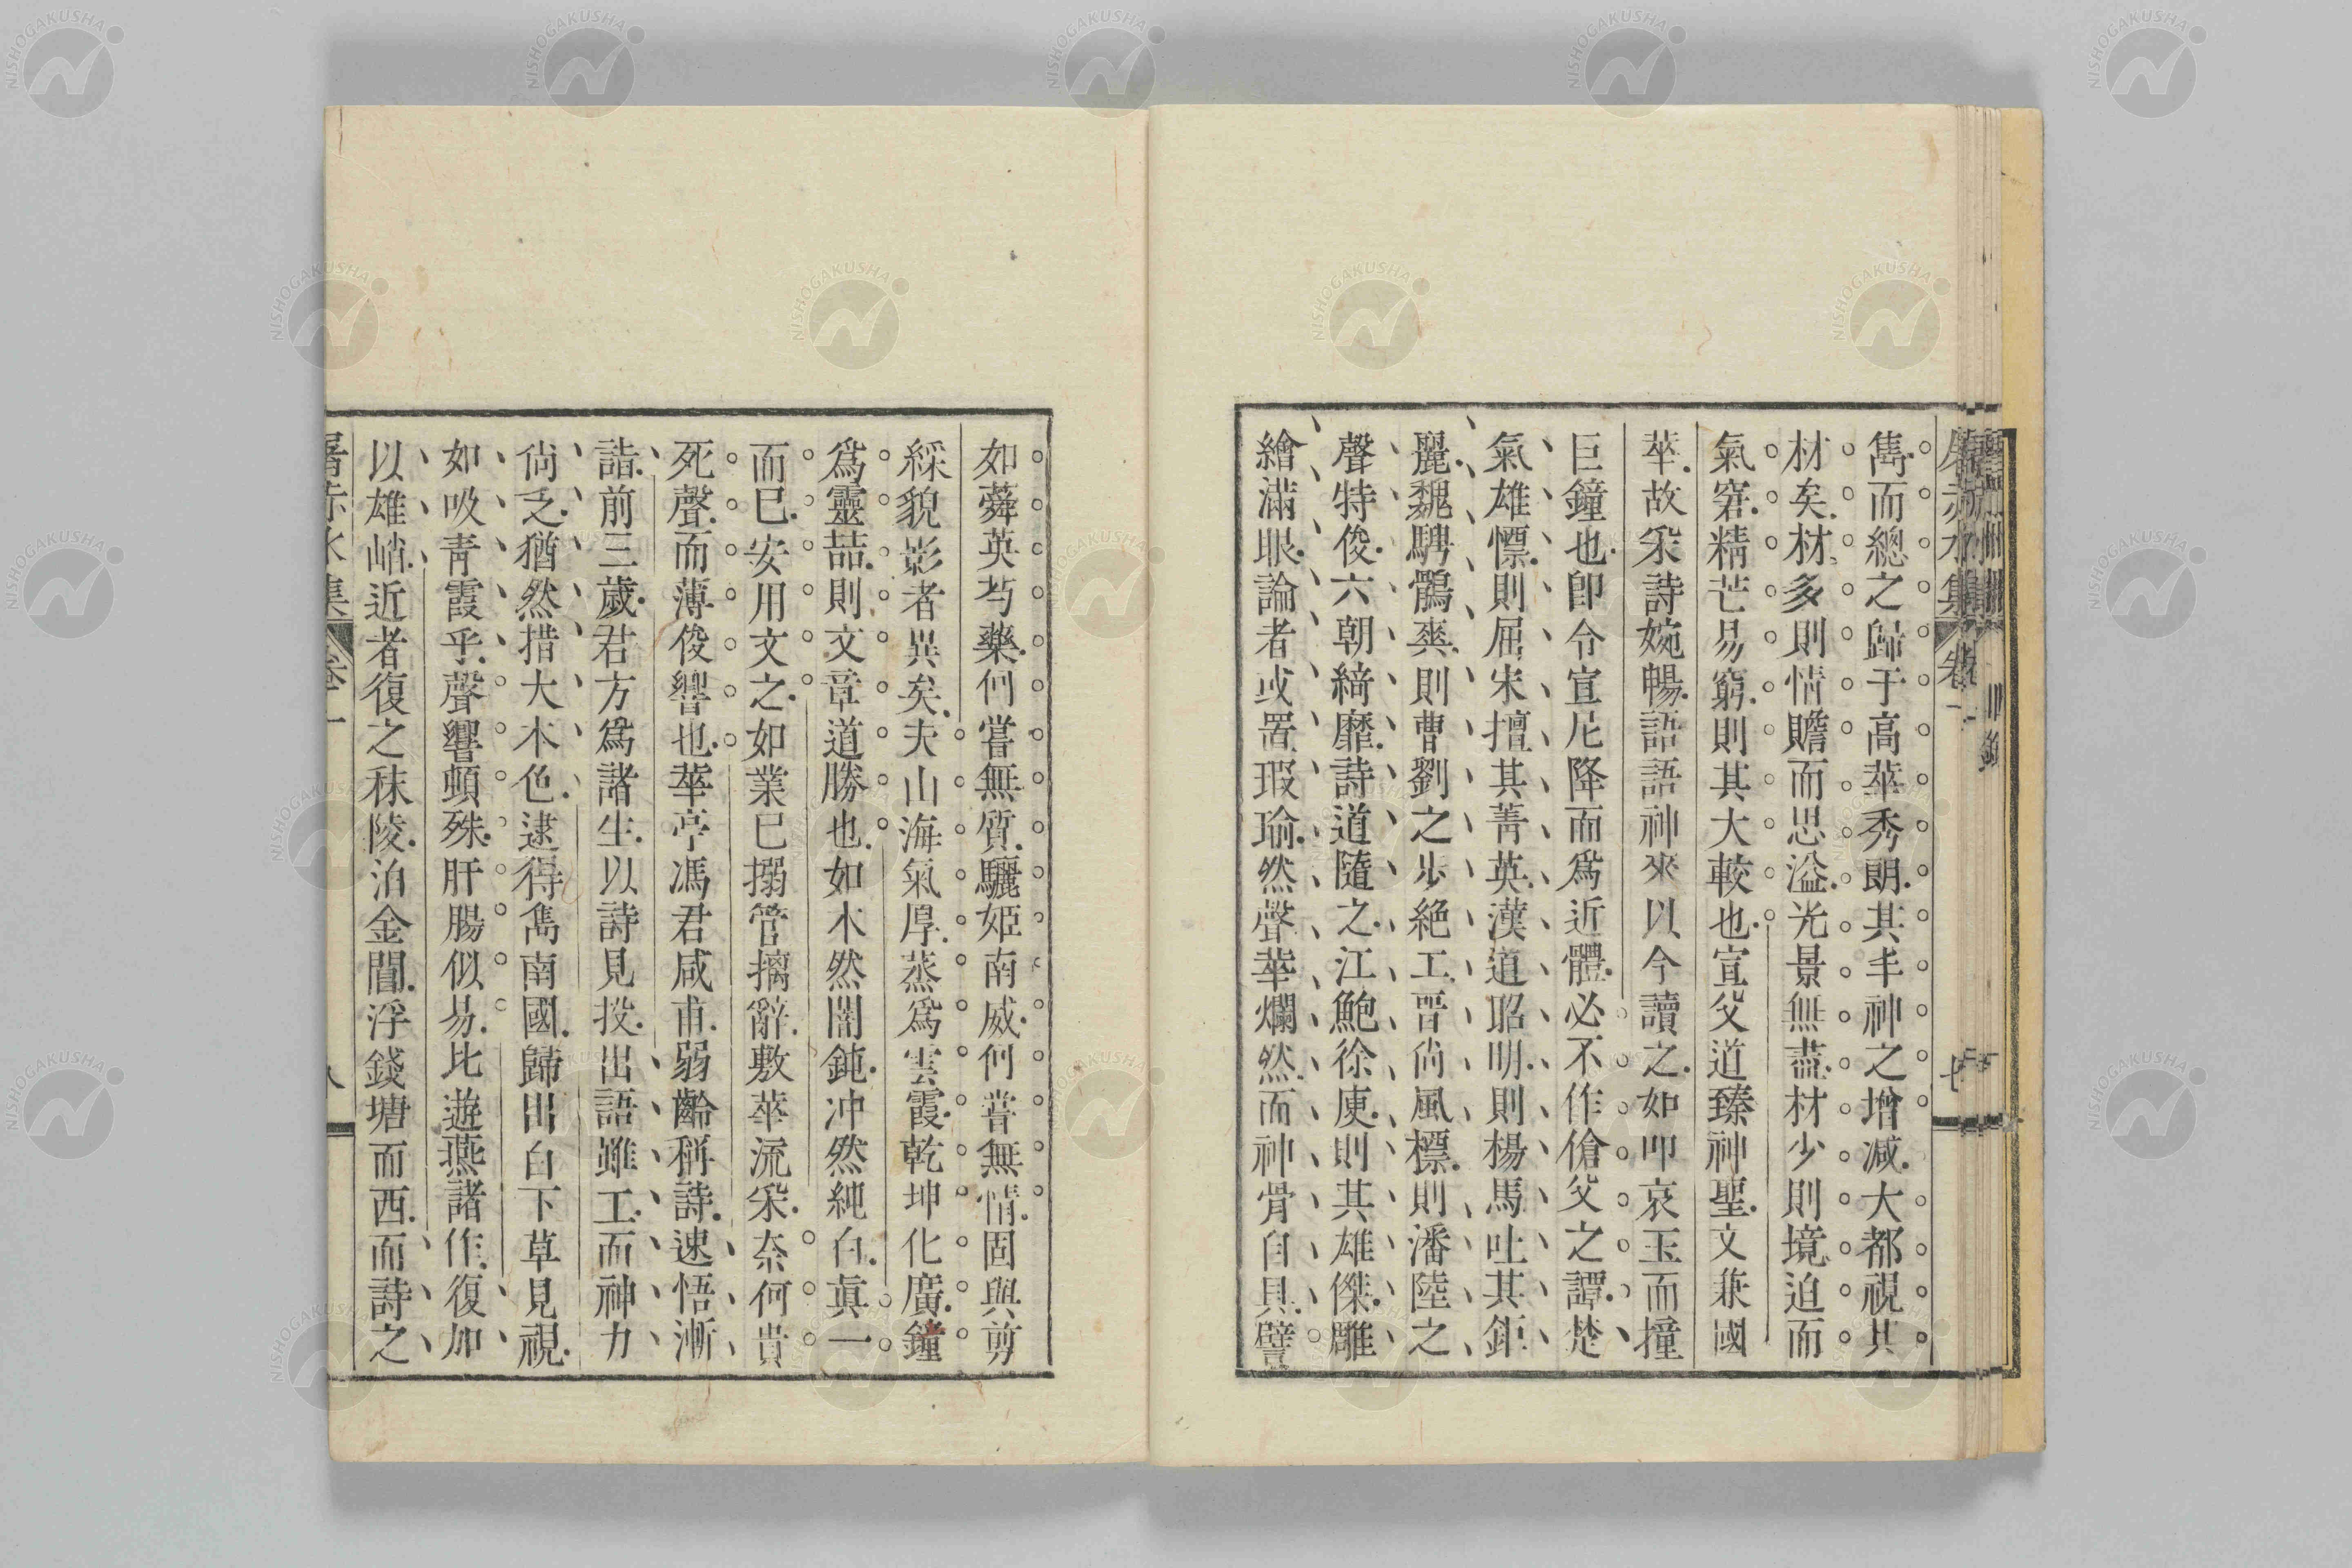 屠赤水集 卷一 七
雋而總之歸于高華秀朗其丰神之增减大都視其
材矣材多則情贍而思溢光景無盡材少則境迫而
氣窘精芒易窮則其大較也宣父道臻神聖文兼國
華故采詩婉暢語語神來以今讀之如叩哀玉而撞
巨鐘也卽令宣尼降而爲近體必不作傖父之譚楚
氣雄慓則屈宋擅其菁英漢道昭明則楊馬吐其鉅
麗魏騁鶻爽則曹劉之步絕工晋尙風標則潘陸之
聲特俊六朝綺靡詩道隨之江鮑徐庾則其雄傑雕
繪滿眼論者或置瑕瑜然聲華爛然而神骨自具譬
如蕣英芍藥何嘗無質驪姬南威何嘗無情固與剪
綵貌影者異矣夫山海氣厚蒸爲雲霞乾坤化廣鐘
爲靈喆則文章道勝也如木然闇鈍冲然純白眞一
而已安用文之如業已搦管摛辭敷華流采奈何貴
死聲而薄俊響也華亭馮君咸甫弱齡稱詩速悟漸
詣前三歲君方爲諸生以詩見投出語雖工而神力
尙乏猶然措大本色逮得雋南國歸出白下草見視
如吸靑霞乎聲響頓殊肝腸似易比遊燕諸作復加
以雄峭近者復之秣陵泊金閶浮錢塘而西而詩之
屠赤水集 卷一 八
NISHOGAKUSHA